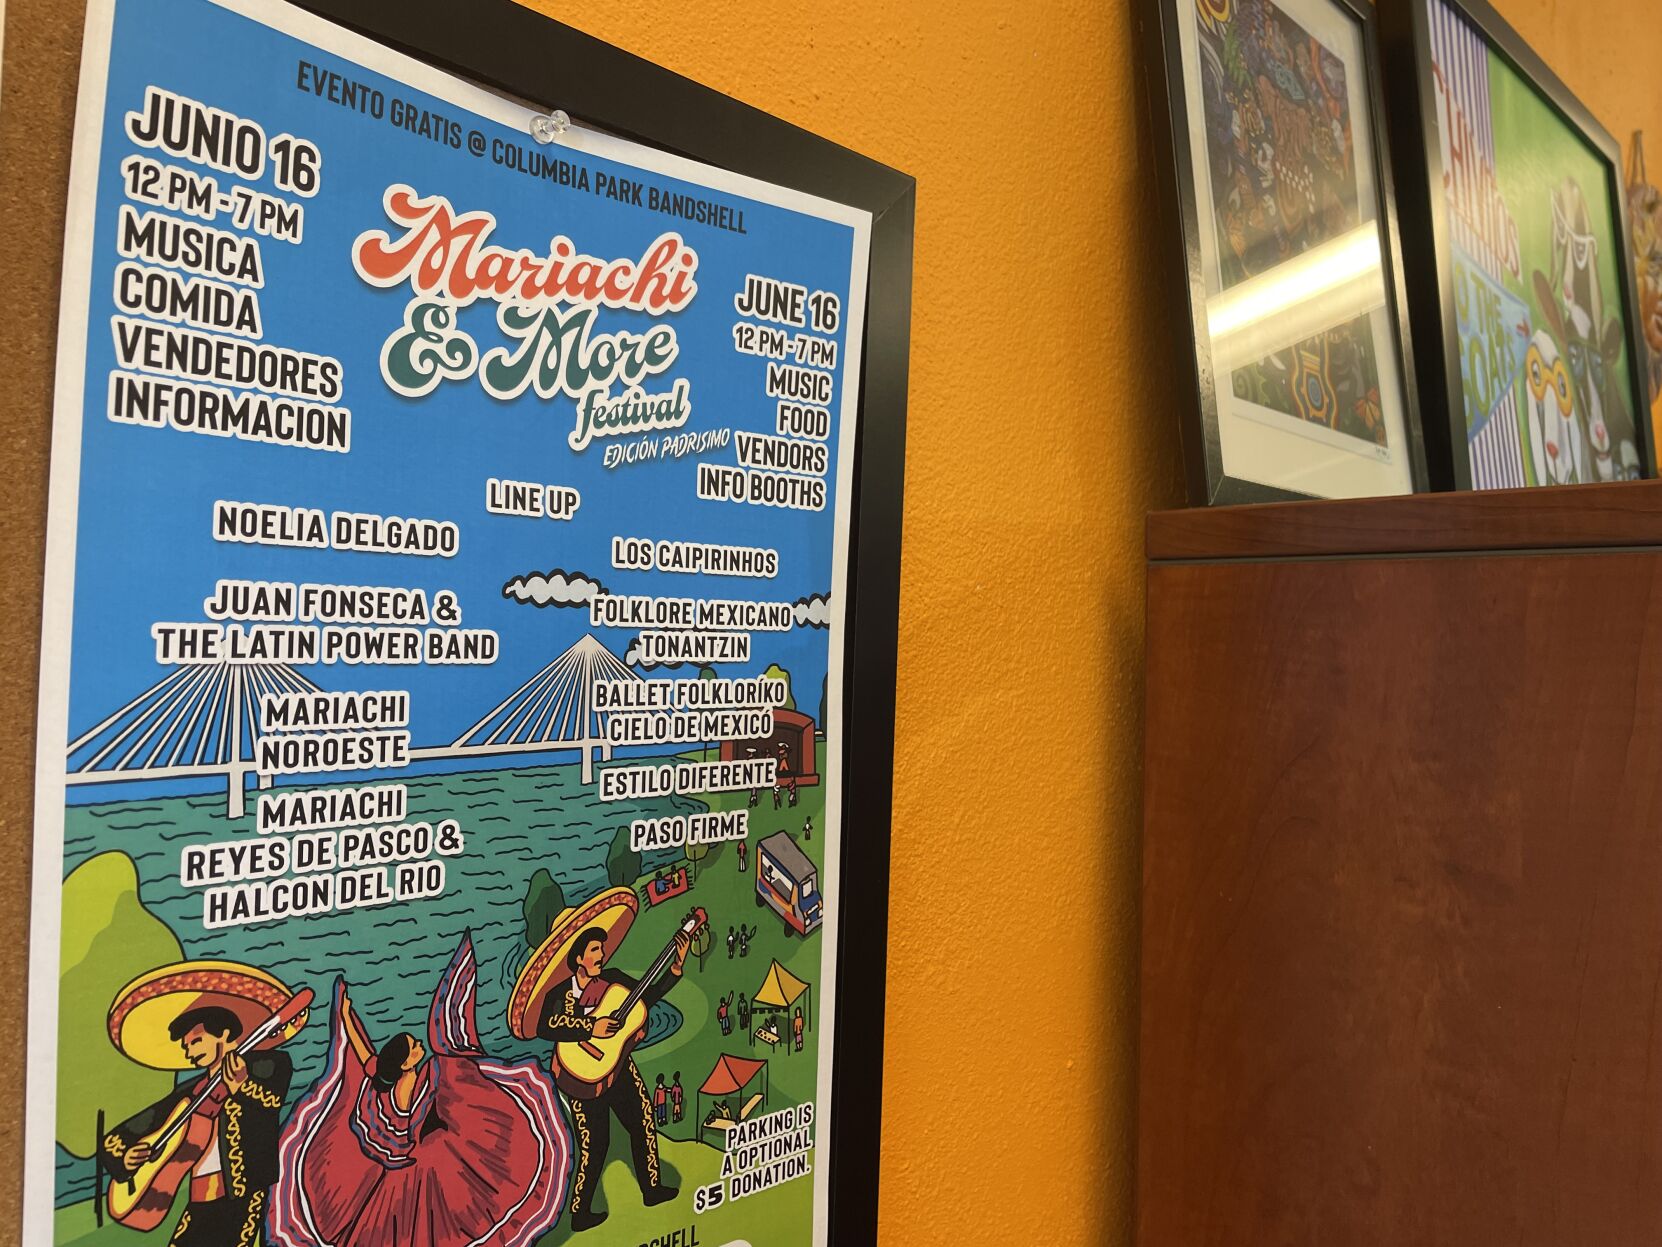 EVENTO GRATIS @ COLUMBIA PARK BANDSHELL
JUNIO 16
12 PM - 7 PM
MUSICA
COMIDA
VENDEDORES
INFORMACION
Mariachi
& More
festival
EDICIÓN PADRISIMO
JUNE 16
12 PM - 7 PM
MUSIC
FOOD
VENDORS
INFO BOOTHS
LINE UP
NOELIA DELGADO
JUAN FONSECA &
THE LATIN POWER BAND
MARIACHI
NOROESTE
MARIACHI
REYES DE PASCO &
HALCON DEL RIO
LOS CAIPIRINHOS
FOLKLORE MEXICANO
TONANTZIN
BALLET FOLKLORÍKO
CIELO DE MEXICÓ
ESTILO DIFERENTE
PASO FIRME
PARKING IS
A OPTIONAL
$5 DONATION.
THE